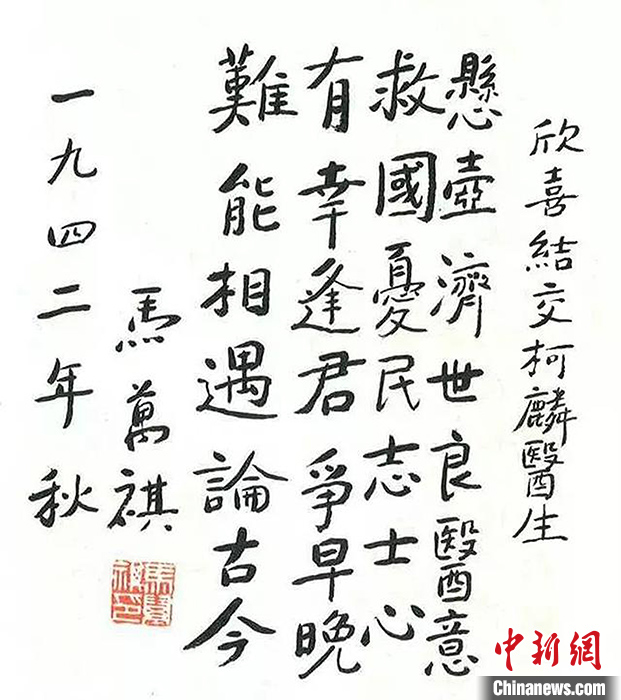 欣喜結交柯麟醫生
懸壺濟世良醫意
救國憂民志士心
有幸逢君爭早晚
難能相遇論古今
馬萬祺
一九四二年秋
馬萬祺印
中新網
Chinanews.com